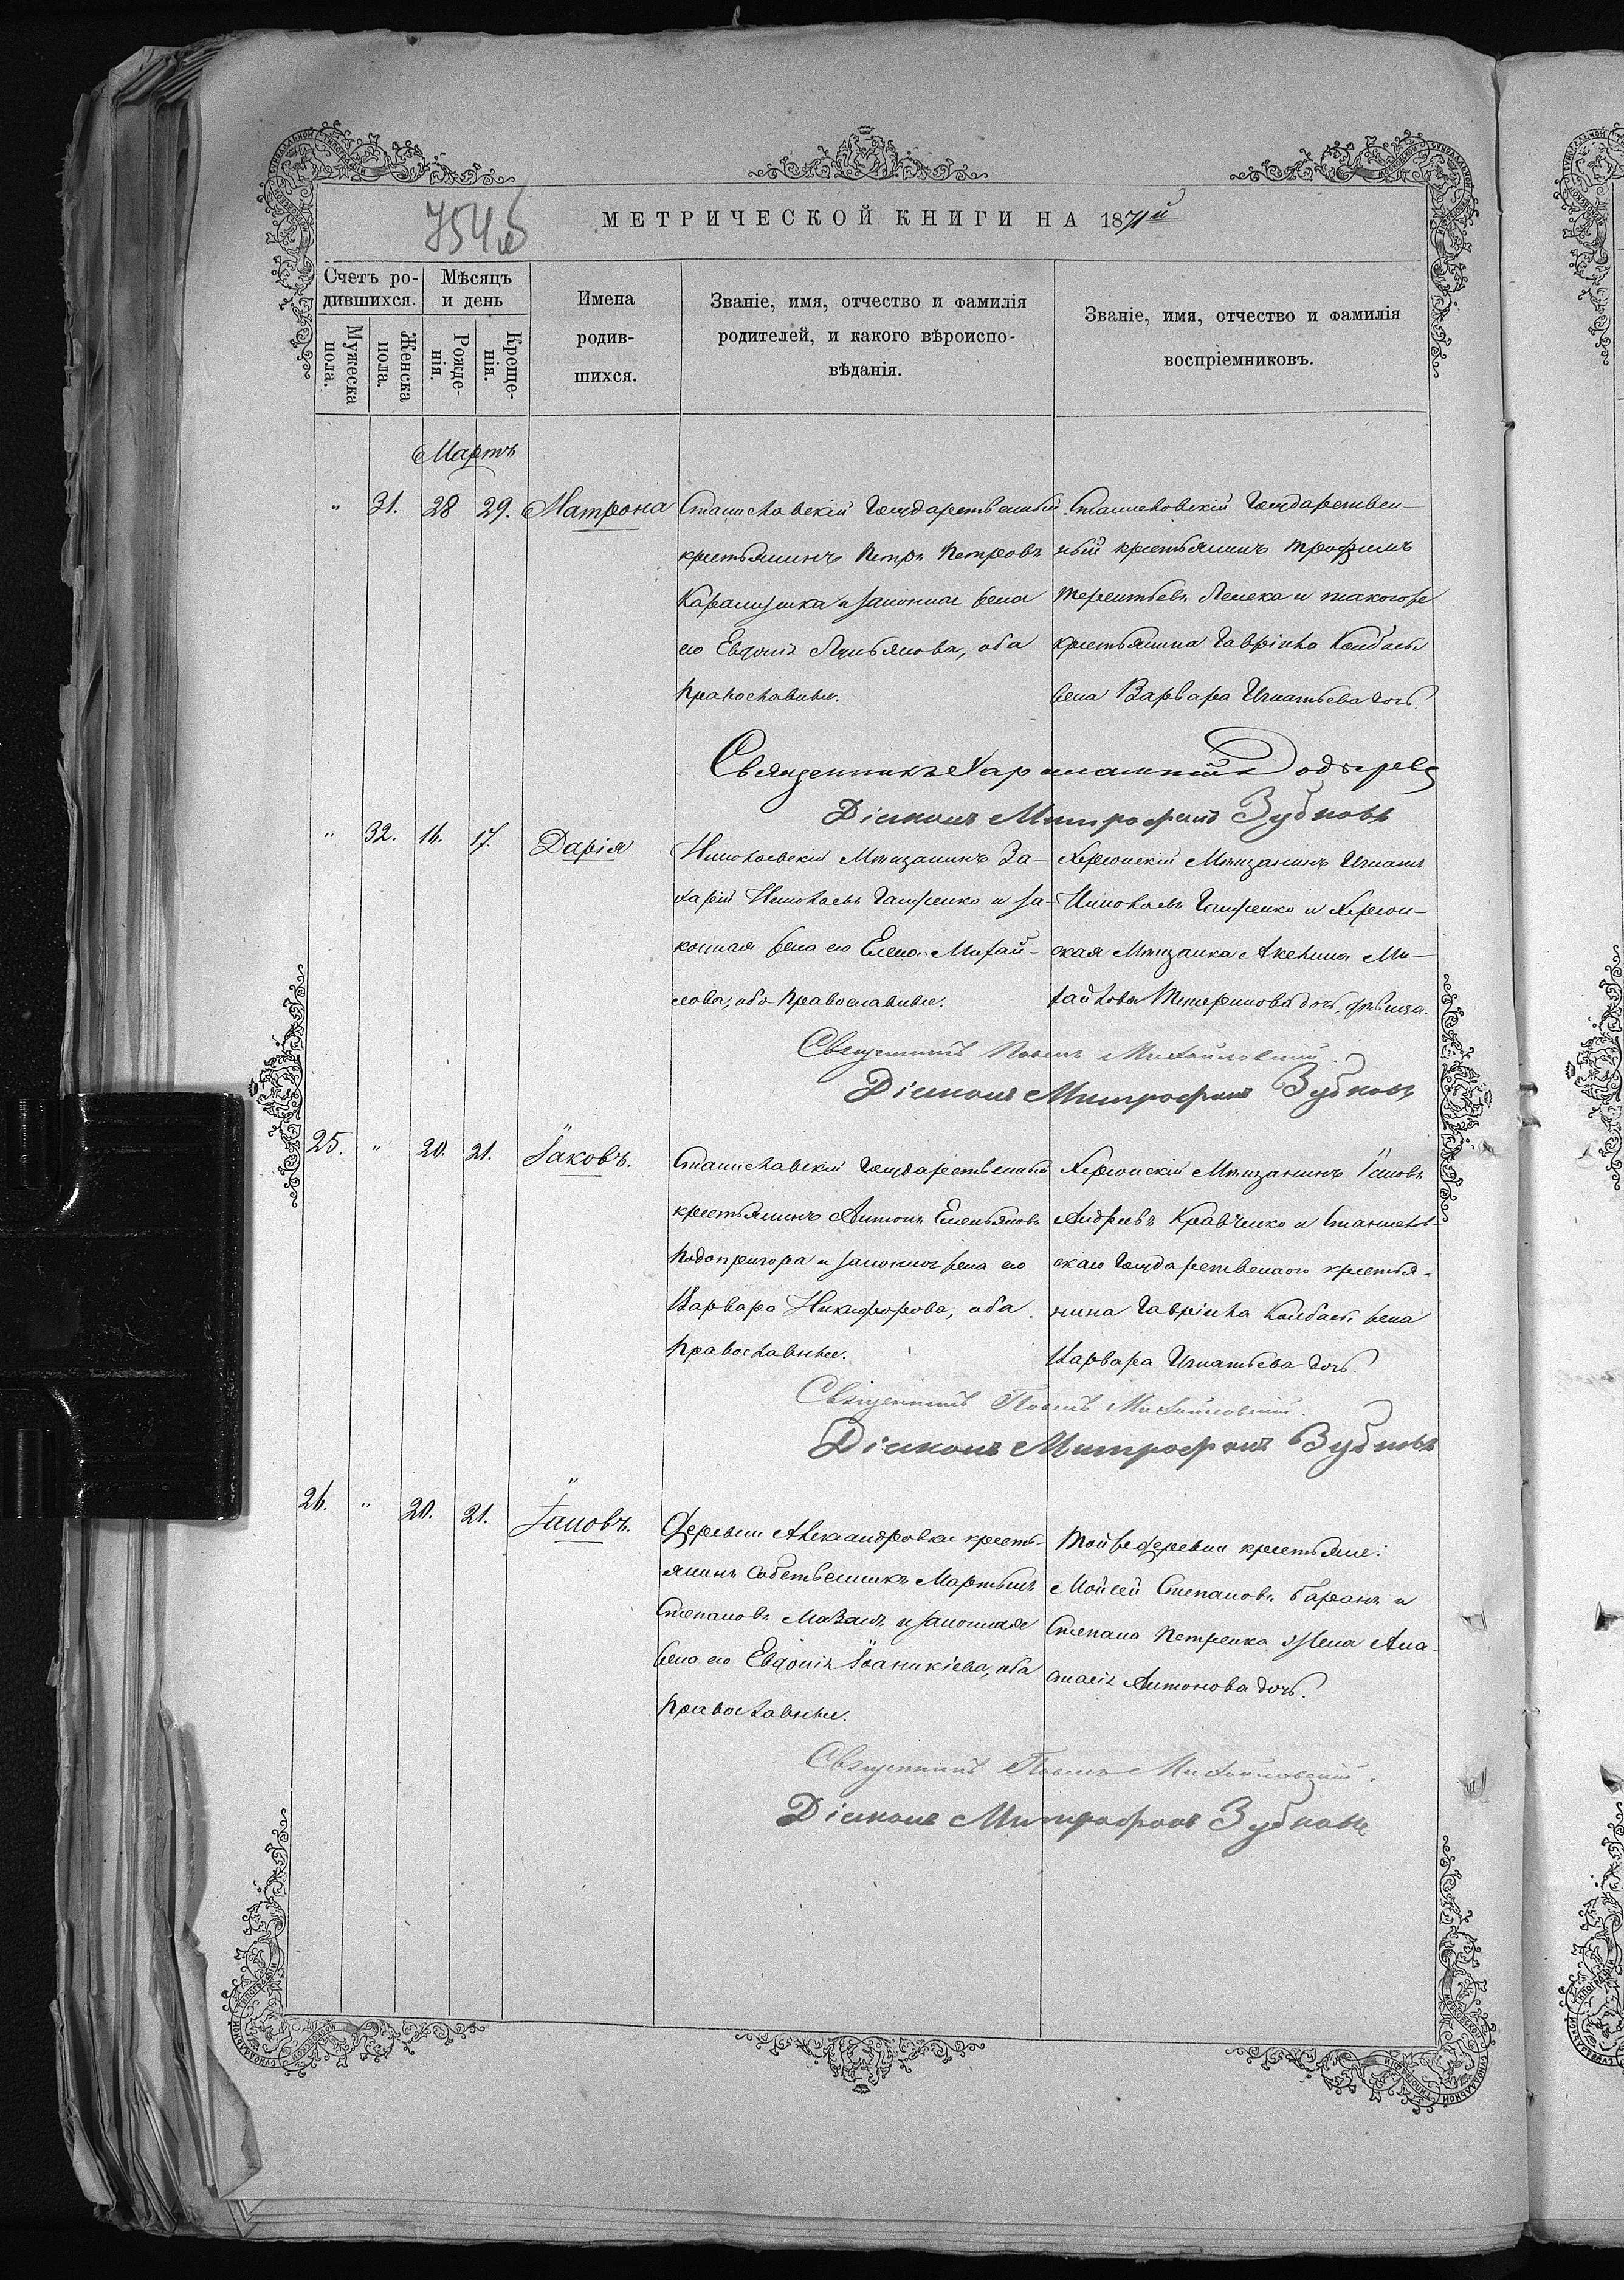 МЕТРИЧЕСКОЙ КНИГИ НА 1871й
754 об
Счетъ ро-
дившихся.
Мужеска
пола.
Женска
пола.
Мѣсяцъ
и день
Рожде-
нія.
Креще-
нія.
Имена
родив-
шихся.
Званіе, имя, отчество и фамилія
родителей, и какого вѣроиспо-
вѣданія.
Званіе, имя, отчество и фамилія
воспріемниковъ.
Мартъ
" 31. 28 29. Матрона
Станиславскій Государственный
крестьянинъ Петръ Петровъ
и законная жена
его Евдокія Лукьянова, оба
православные.
Станиславскій Государствен-
ный крестьянинъ Трофимъ
Терентьевъ и такогоже
крестьянина Гавріила
жена Варвара Игнатьева дочь.
Священникъ Харалампій
Діаконъ Митрофанъ Зубковъ
" 32. 16. 17. Дарія
Николаевскій Мѣщанинъ За-
харій Николаевъ и за-
конная жена его Елена Михай-
лова, оба православные.
Херсонскій Мѣщанинъ Игнатъ
Николаевъ и Херсон-
ская Мѣщанка Акелина Ми-
хайлова дочь, дѣвица.
Священникъ Павелъ Михайловскій.
Діаконъ Митрофанъ Зубковъ
25. " 20. 21. Іаковъ.
Станиславскій Государственный
крестьянинъ Антонъ Емельяновъ
Подопригора и законная жена его
Варвара Никифорова, оба
православные.
Херсонскій Мѣщанинъ Іаковъ
Андреевъ Кравченко и Станислав-
скаго Государственнаго крестья-
нина Гавріила жена
Варвара Игнатьева дочь.
Священникъ Павелъ Михайловскій.
Діаконъ Митрофанъ Зубковъ
26. " 20. 21. Іаковъ.
Деревни Александровки кресть-
янинъ собственникъ Мартынъ
Степановъ Мазанъ и законная
жена его Евдокія Іоаникіева, оба
православные.
Той же деревни крестьяне:
Мойсей Степановъ Баранъ и
Степана Петренка жена Ана-
стасія Антонова дочь.
Священникъ Павелъ Михайловскій.
Діаконъ Митрофанъ Зубковъ